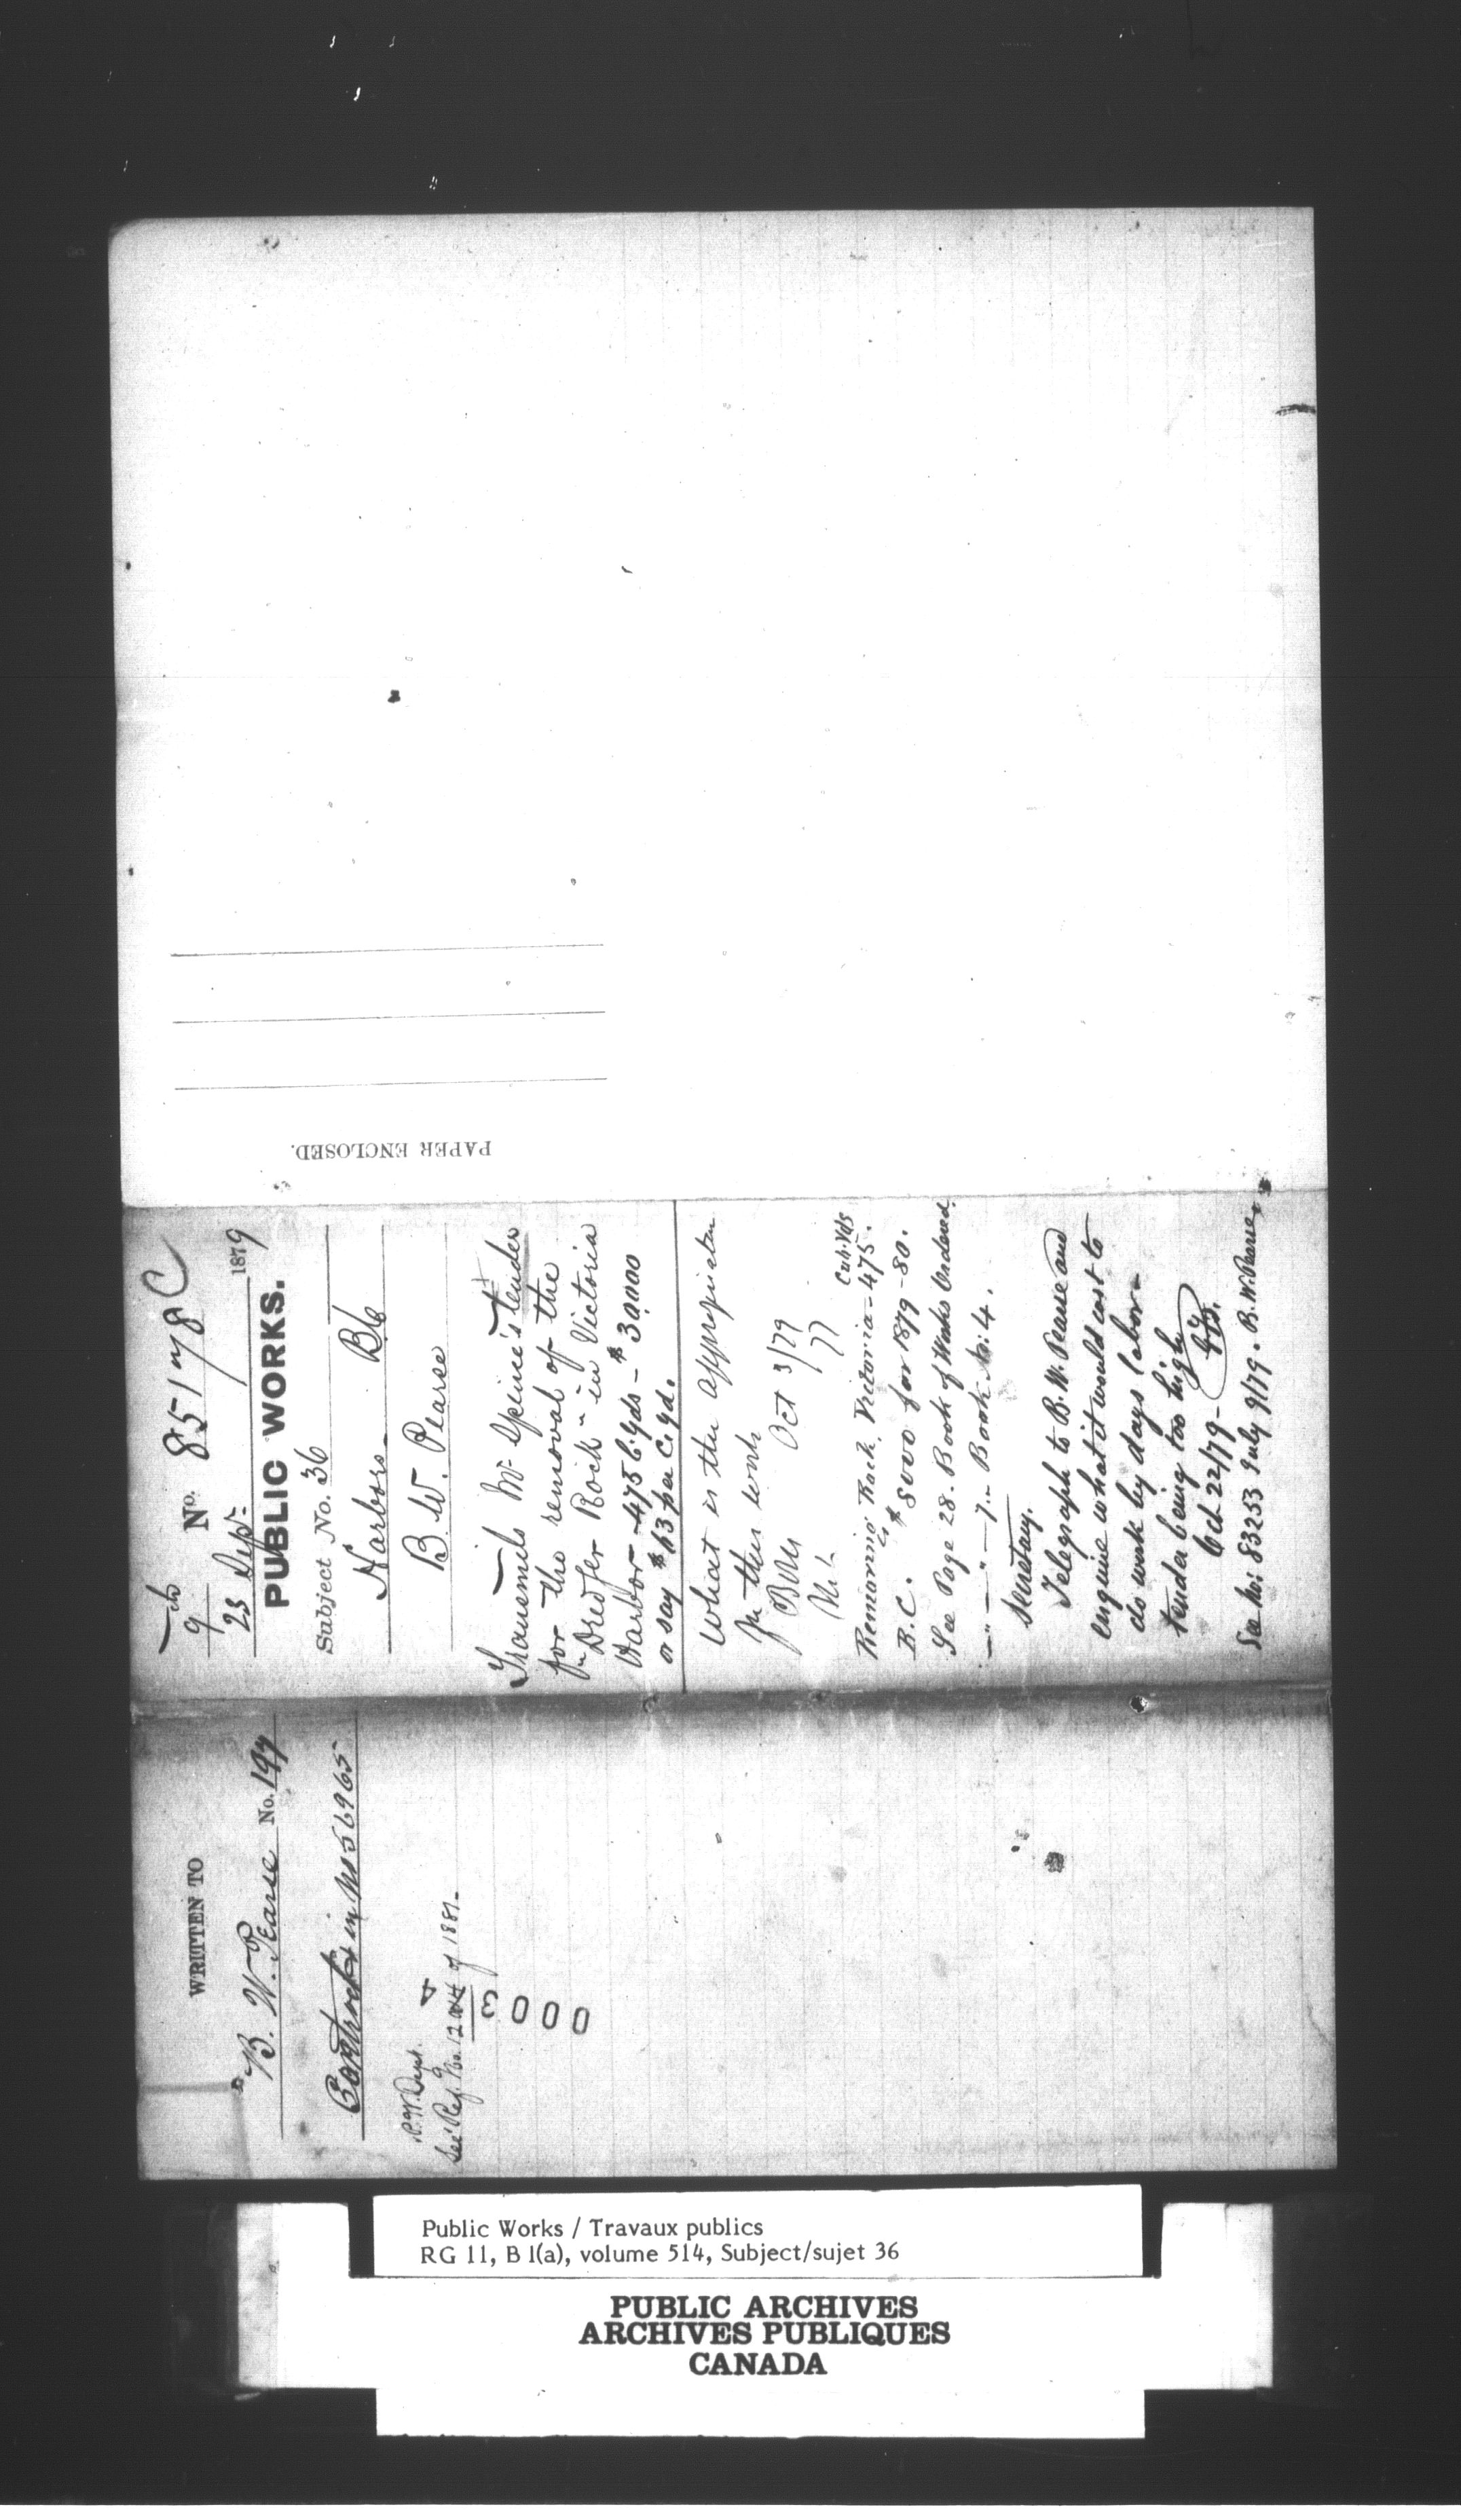 9th
No. 85178 C
23 Sept 1879
PUBLIC WORKS.
Subject No. 36
Harbors BC
B. W. Pearse
Transmits Mr Spence's tender
for the removal of the
"Dredger Rock" in Victoria
Harbor - 475 C. yds - $30,000
or say $63 per C. yd.
What is the appropriation
for this work
Oct 3/79
Removing Rock, Victoria - 475 Cub. Yds.
B. C. $8000 for 1879-80.
See Page 28. Book of Works Ordered.
— " — " — 7 — Book No: 4.
Secretary.
Telegraph to B. W. Pearse and
enquire what it would cost to
do work by days labor -
tender being too high
Oct 22/79 -
See No: 83253 July 9/79. B. W. Pearse.
WRITTEN TO
B. W. Pearse No. 197
Contract in No 56965
P. W. Dept.
See Ref. No. of 1881 -
3000
PAPER ENCLOSED.
Public Works / Travaux publics
RG 11, B 1(a), volume 514, Subject/sujet 36
PUBLIC ARCHIVES
ARCHIVES PUBLIQUES
CANADA